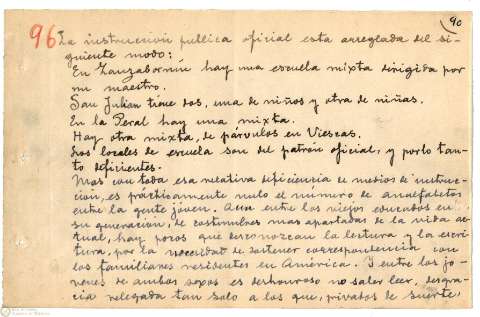 90
96 La instruccion publica oficial esta arreglada del si-
guiente modo:
En Zanzabornín hay una escuela mixta dirigida por
un maestro.
San Julian tiene dos, una de niños y otra de niñas.
En la Peral hay una mixta.
Hay otra mixta, de párvulos en Viescas.
Los locales de escuela son del patrón oficial, y por lo tan-
to deficientes.
Mas con toda esa relativa deficiencia de medios de instruc-
ción, es prácticamente nulo el número de analfabetos
entre la gente joven. Aun entre los viejos educados en
su generacion, de costumbres mas apartadas de la vida ac-
tual, hay pocos que desconozcan la lectura y la escri-
tura, por la necesidad de sostener correspondencia con
los familiares residentes en América. Y entre los jo-
venes de ambos sexos es deshonroso no saber leer, desgra-
cia relegada tan solo a los que, privados de suerte,